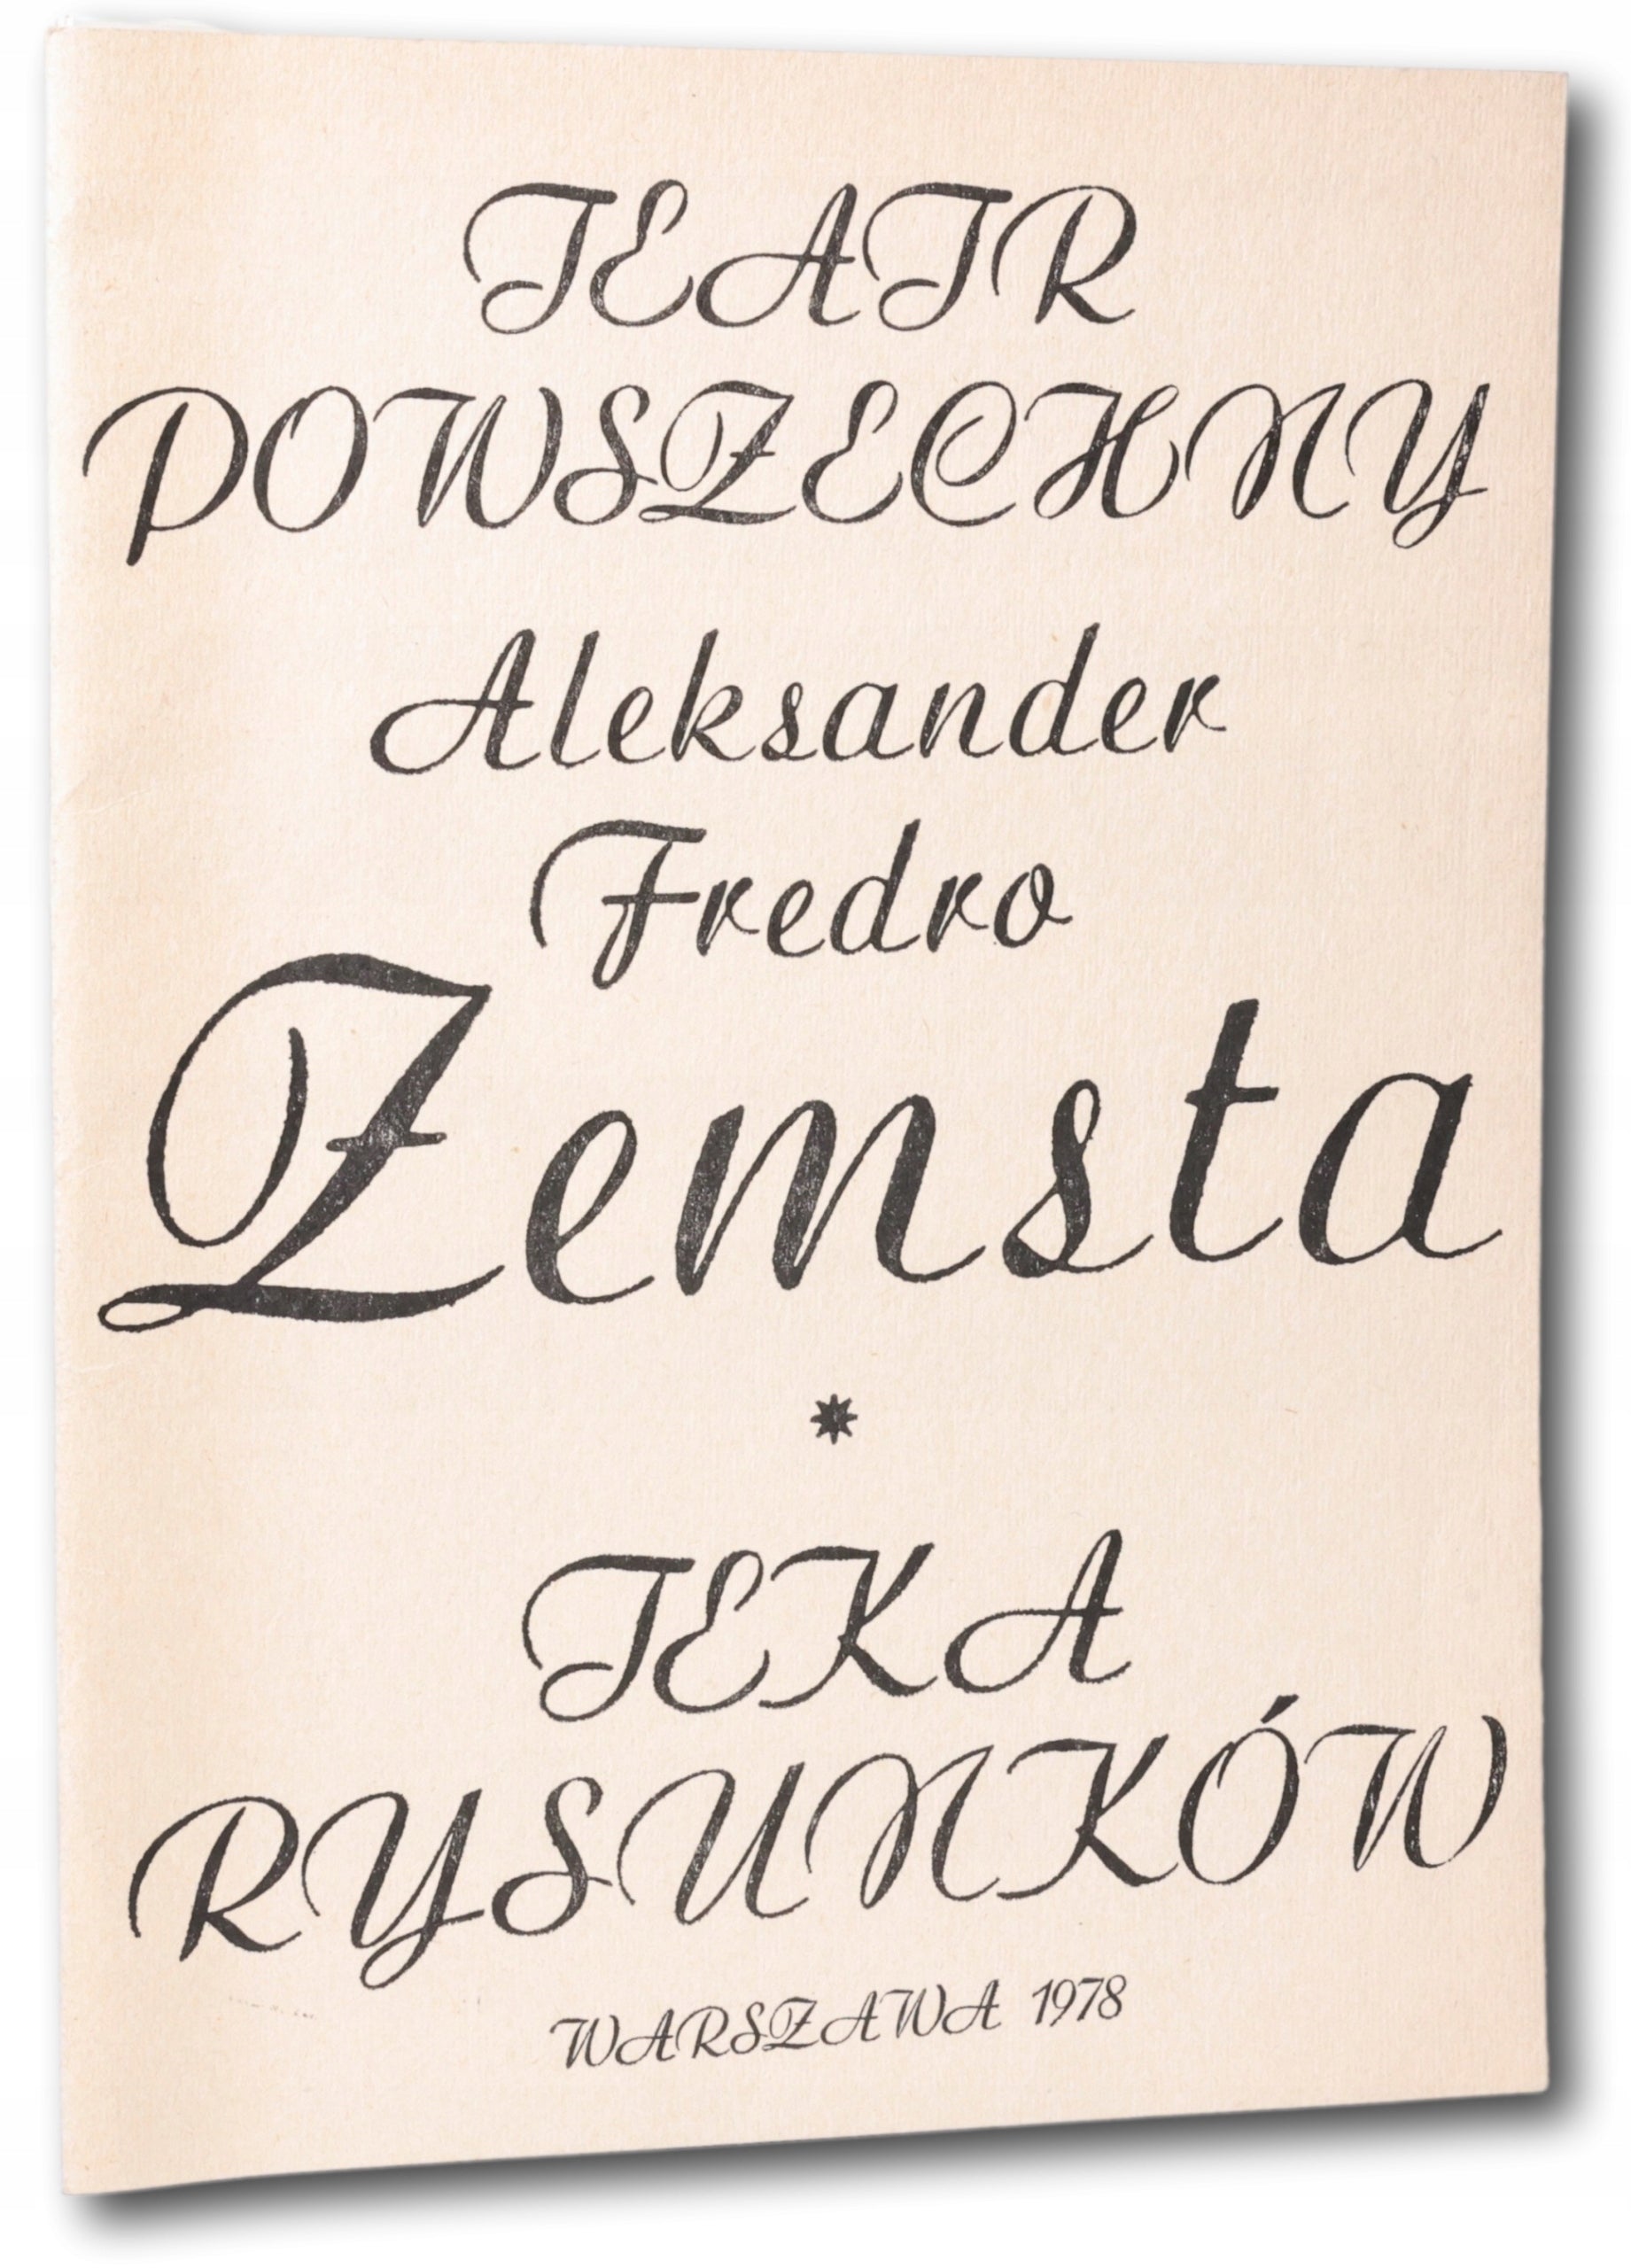 TEATR
POWSZECHNY
Aleksander
Fredro
Zemsta
*
TEKA
RYSUNKÓW
WARSZAWA 1978